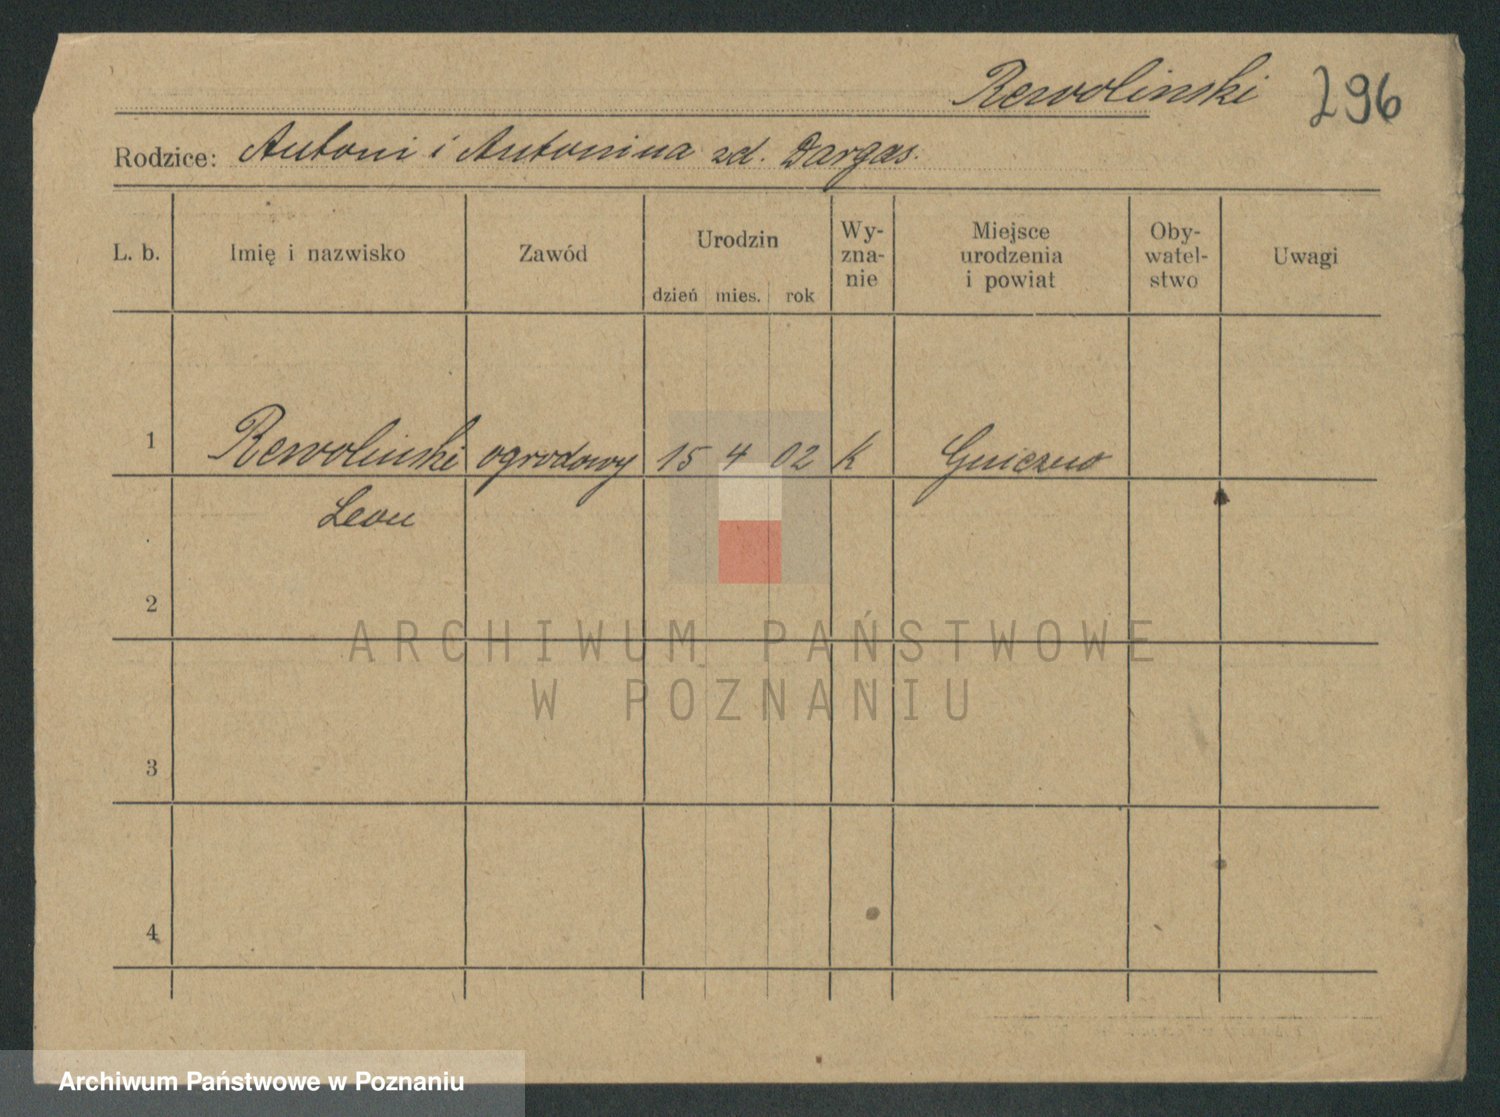 Rewolinski 296
Rodzice: Antoni i Antonina zd. Dargas.
L. b. Imię i nazwisko Zawód Urodzin dzień mies. rok Wy-
zna-
nie Miejsce
urodzenia
i powiat Oby-
watel-
stwo Uwagi
1 Rewolinski ogrodowy 15 4 02 k Gniezno
Leon
2
ARCHIWUM PAŃSTWOWE
W POZNANIU
3
4
Archiwum Państwowe w Poznaniu